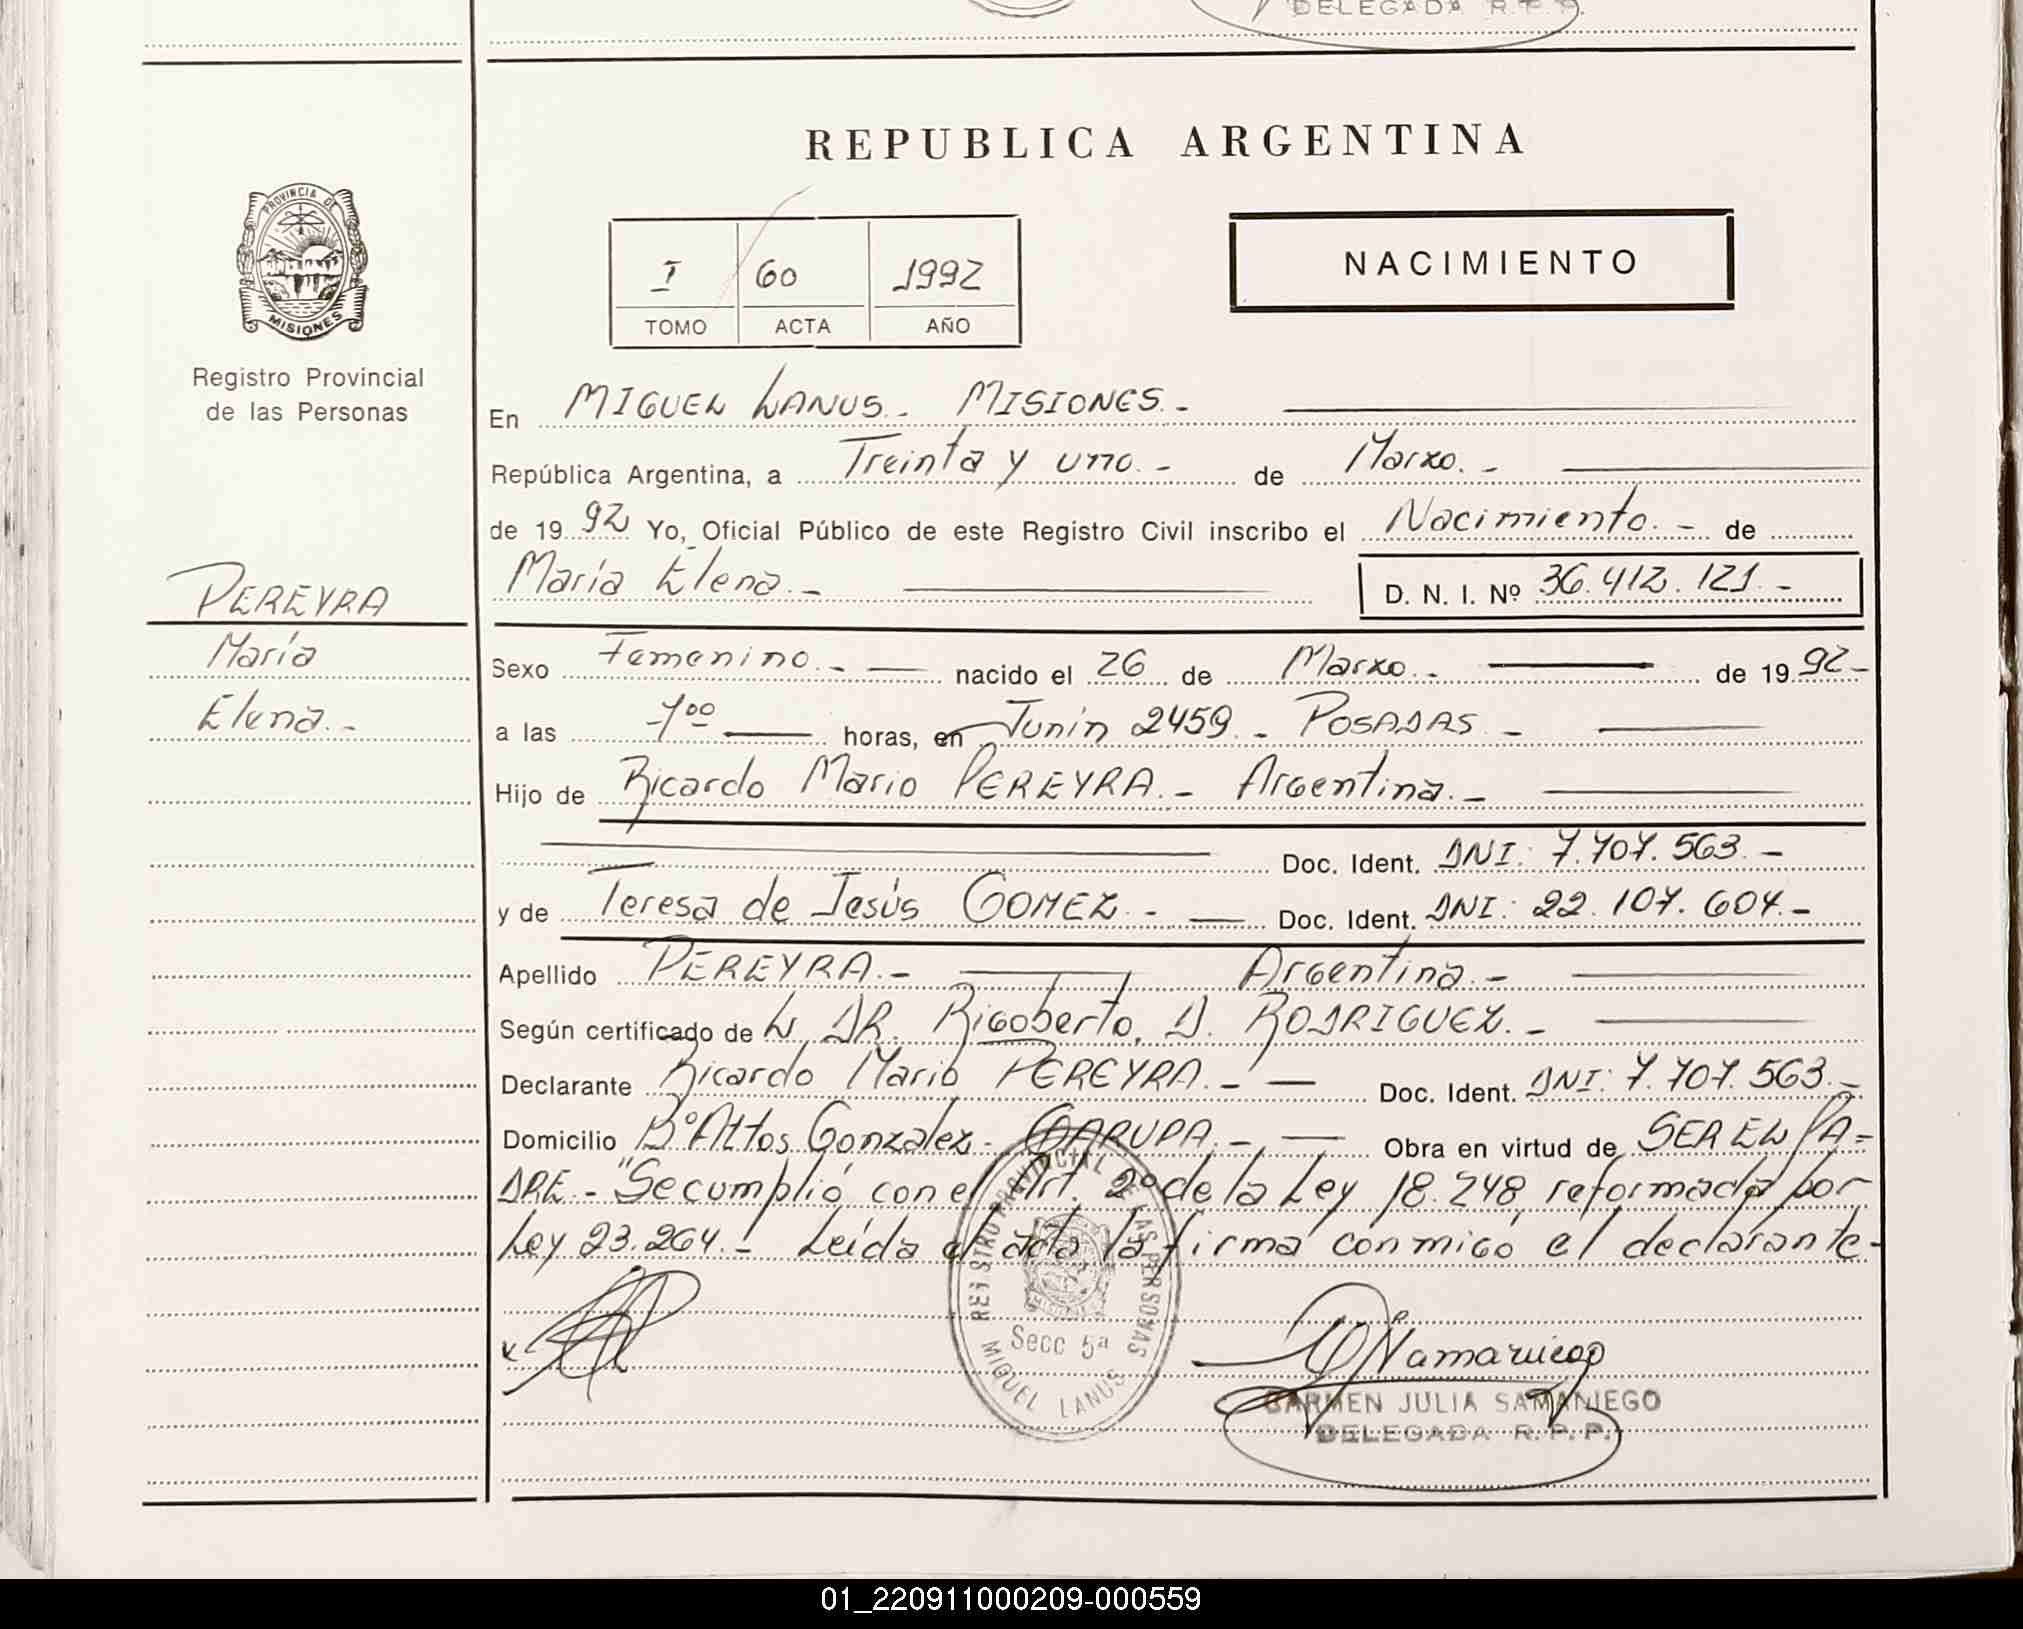 DELEGADA R.P.P.
REPUBLICA ARGENTINA
PROVINCIA DE
MISIONES
I 60 1992
TOMO ACTA AÑO
NACIMIENTO
Registro Provincial
de las Personas
En MIGUEL LANUS.- MISIONES.-
República Argentina, a Treinta y uno.- de Marzo.-
de 1992 Yo, Oficial Público de este Registro Civil inscribo el Nacimiento.- de
María Elena.- D. N. I. Nº 36.412.121.-
PEREYRA
María
Elena.-
Sexo Femenino.- nacido el 26 de Marzo.- de 1992-
a las 7°° horas, en Junín 2459.- POSADAS.-
Hijo de Ricardo Mario PEREYRA.- Argentina.-
Doc. Ident. DNI: 7.707.563.-
y de Teresa de Jesús GOMEZ.- Doc. Ident. DNI: 22.107.604.-
Apellido PEREYRA.- Argentina.-
Según certificado de L DR. Rigoberto, D. RODRIGUEZ.-
Declarante Ricardo Mario PEREYRA.- Doc. Ident. DNI: 7.707.563.-
Domicilio Bº Altos Gonzalez- GARUPA.- Obra en virtud de SER EL PA=
DRE.- "Se cumplió con el Art. 2º de la Ley 18.248, reformada por
Ley 23.264.- Leída el acta la firma conmigo el declarante.-
REGISTRO PROVINCIAL DE LAS PERSONAS
MISIONES
Secc 5ª
MIGUEL LANUS
CARMEN JULIA SAMANIEGO
DELEGADA R.P.P.
01_220911000209-000559